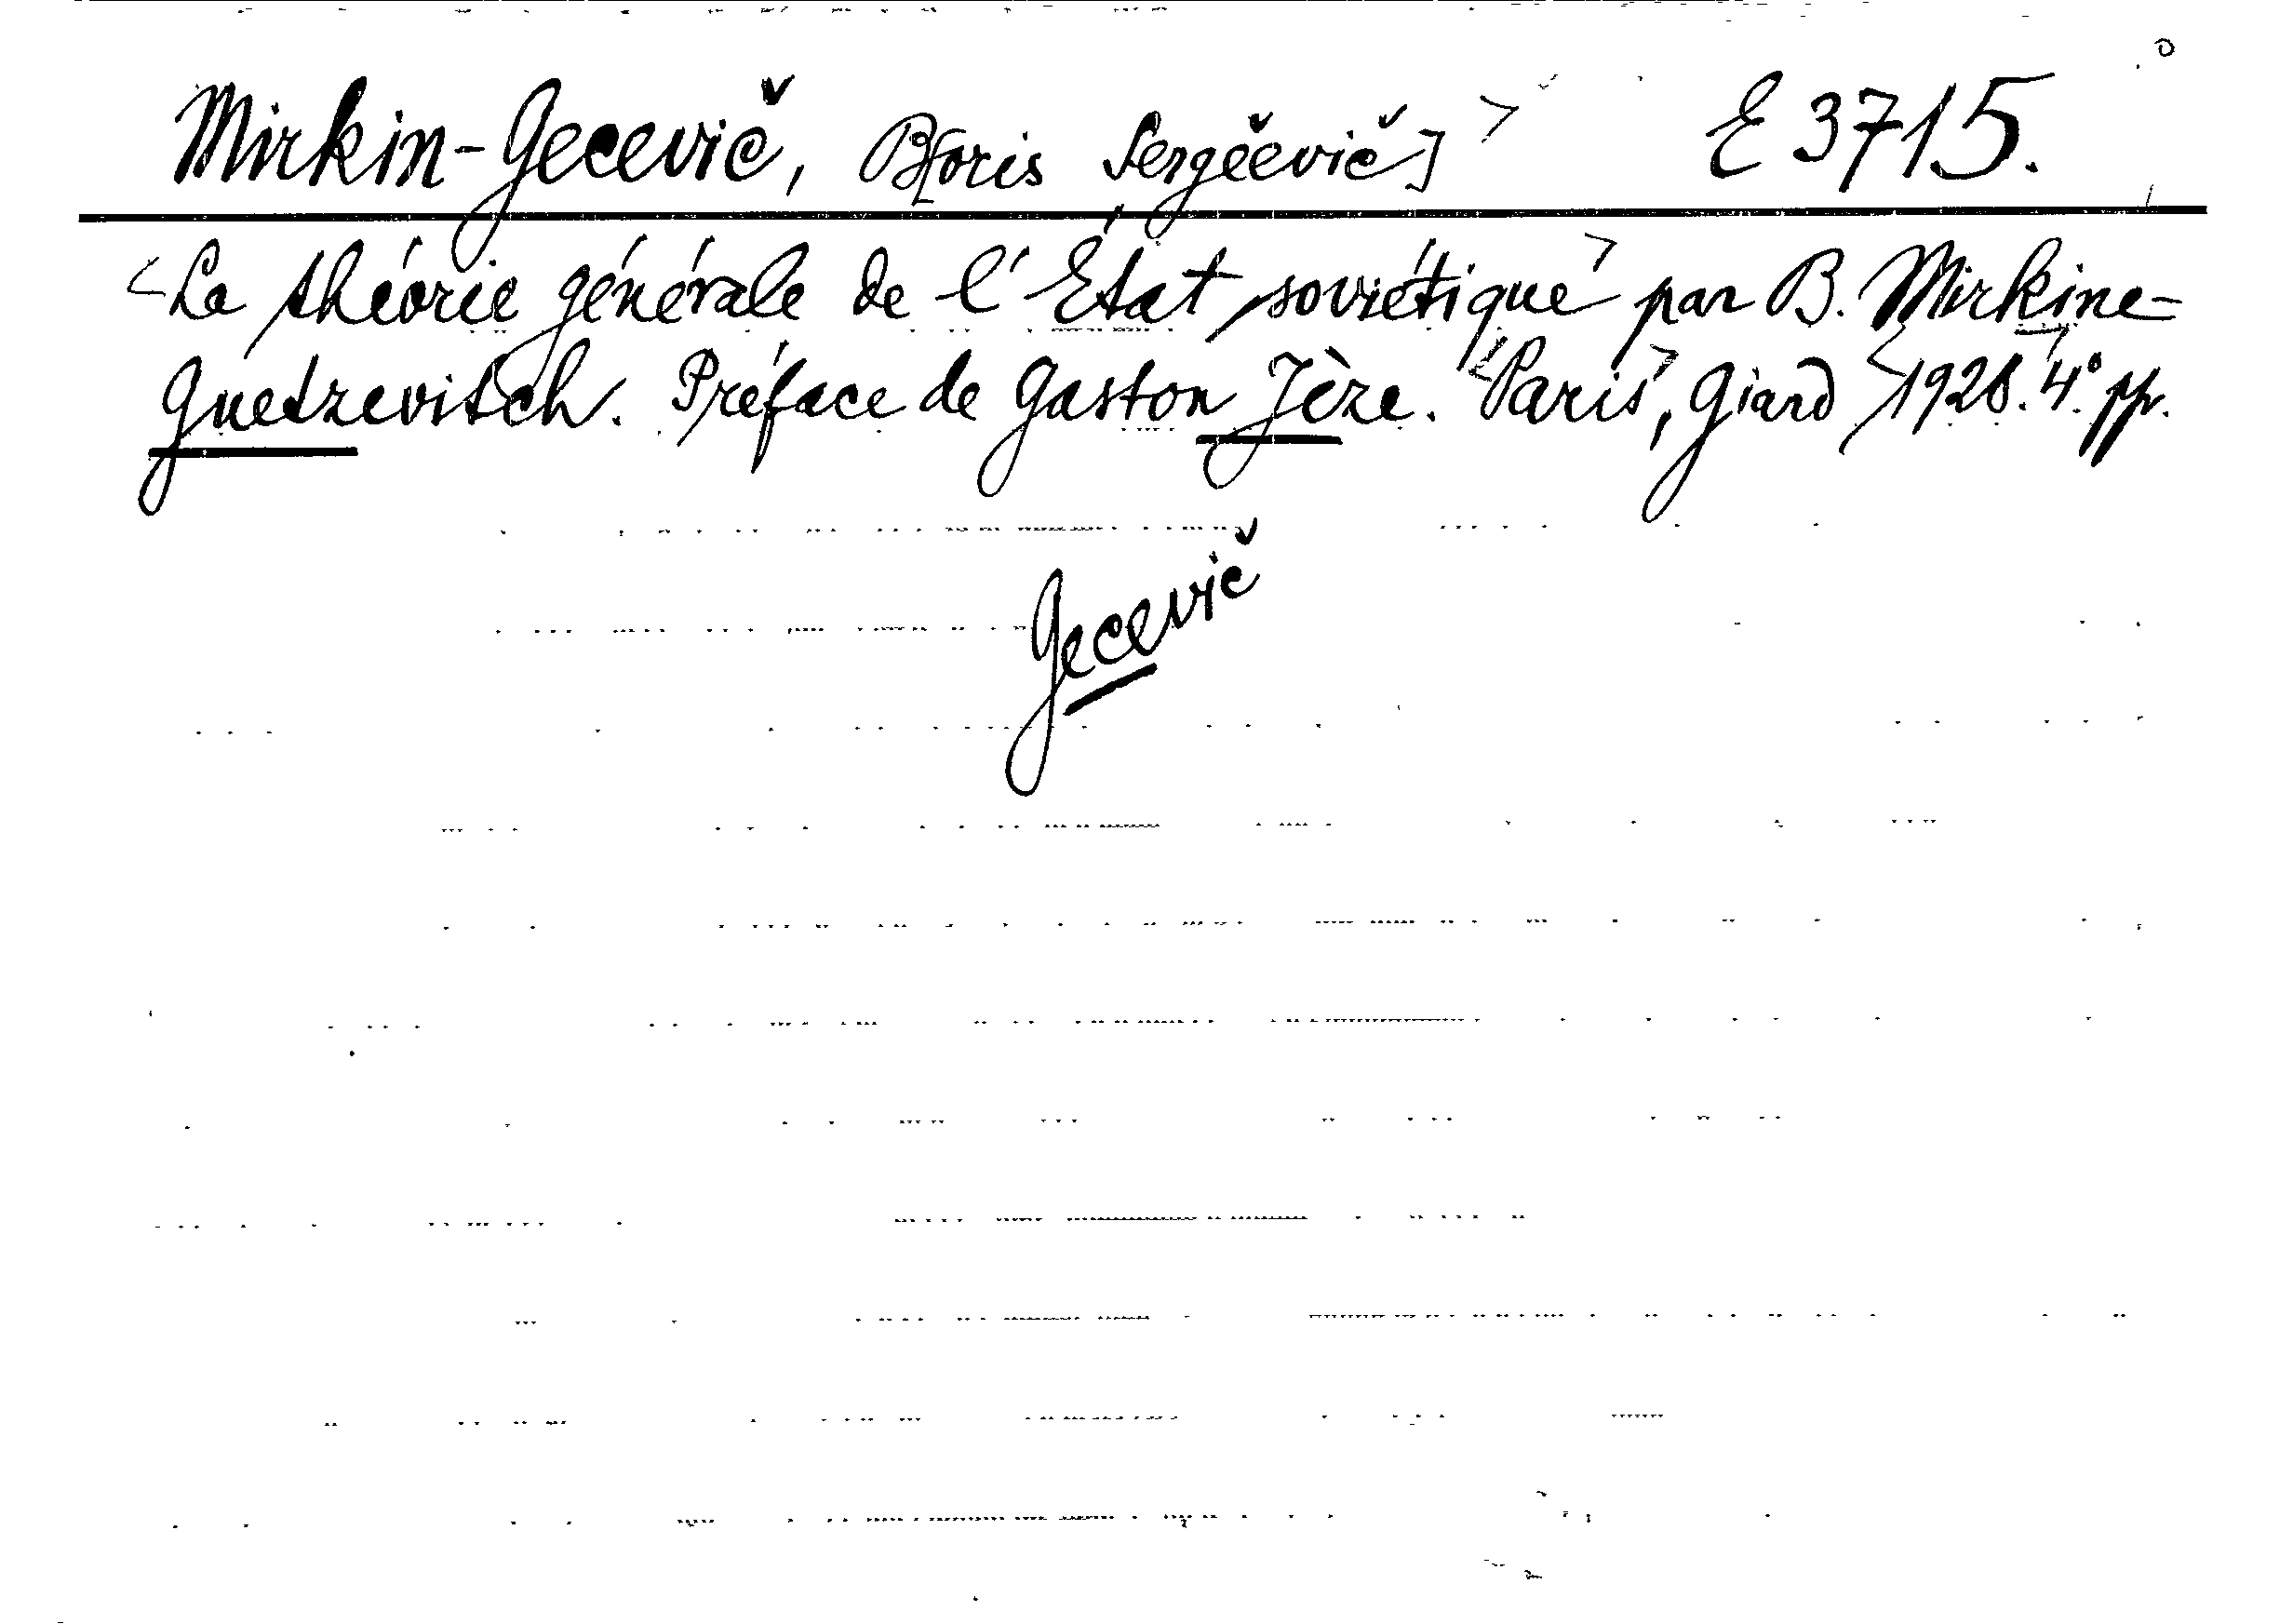 Mirkin-Gecevič, B[oris Sergěevič] > E 3715.
<La théorie générale de l'État soviétique> par B. Mirkine-
Guetzevitch. Préface de Gaston Jèze. <Paris>, Giard <1928. 4° pp.
Gecevič